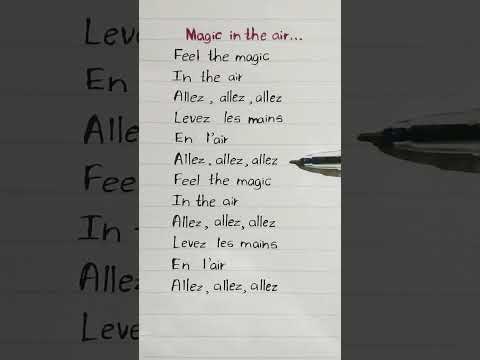 Magic in the air...
Feel the magic
In the air
Allez, allez, allez
Levez les mains
En l'air
Allez, allez, allez
Feel the magic
In the air
Allez, allez, allez
Levez les mains
En l'air
Allez, allez, allez